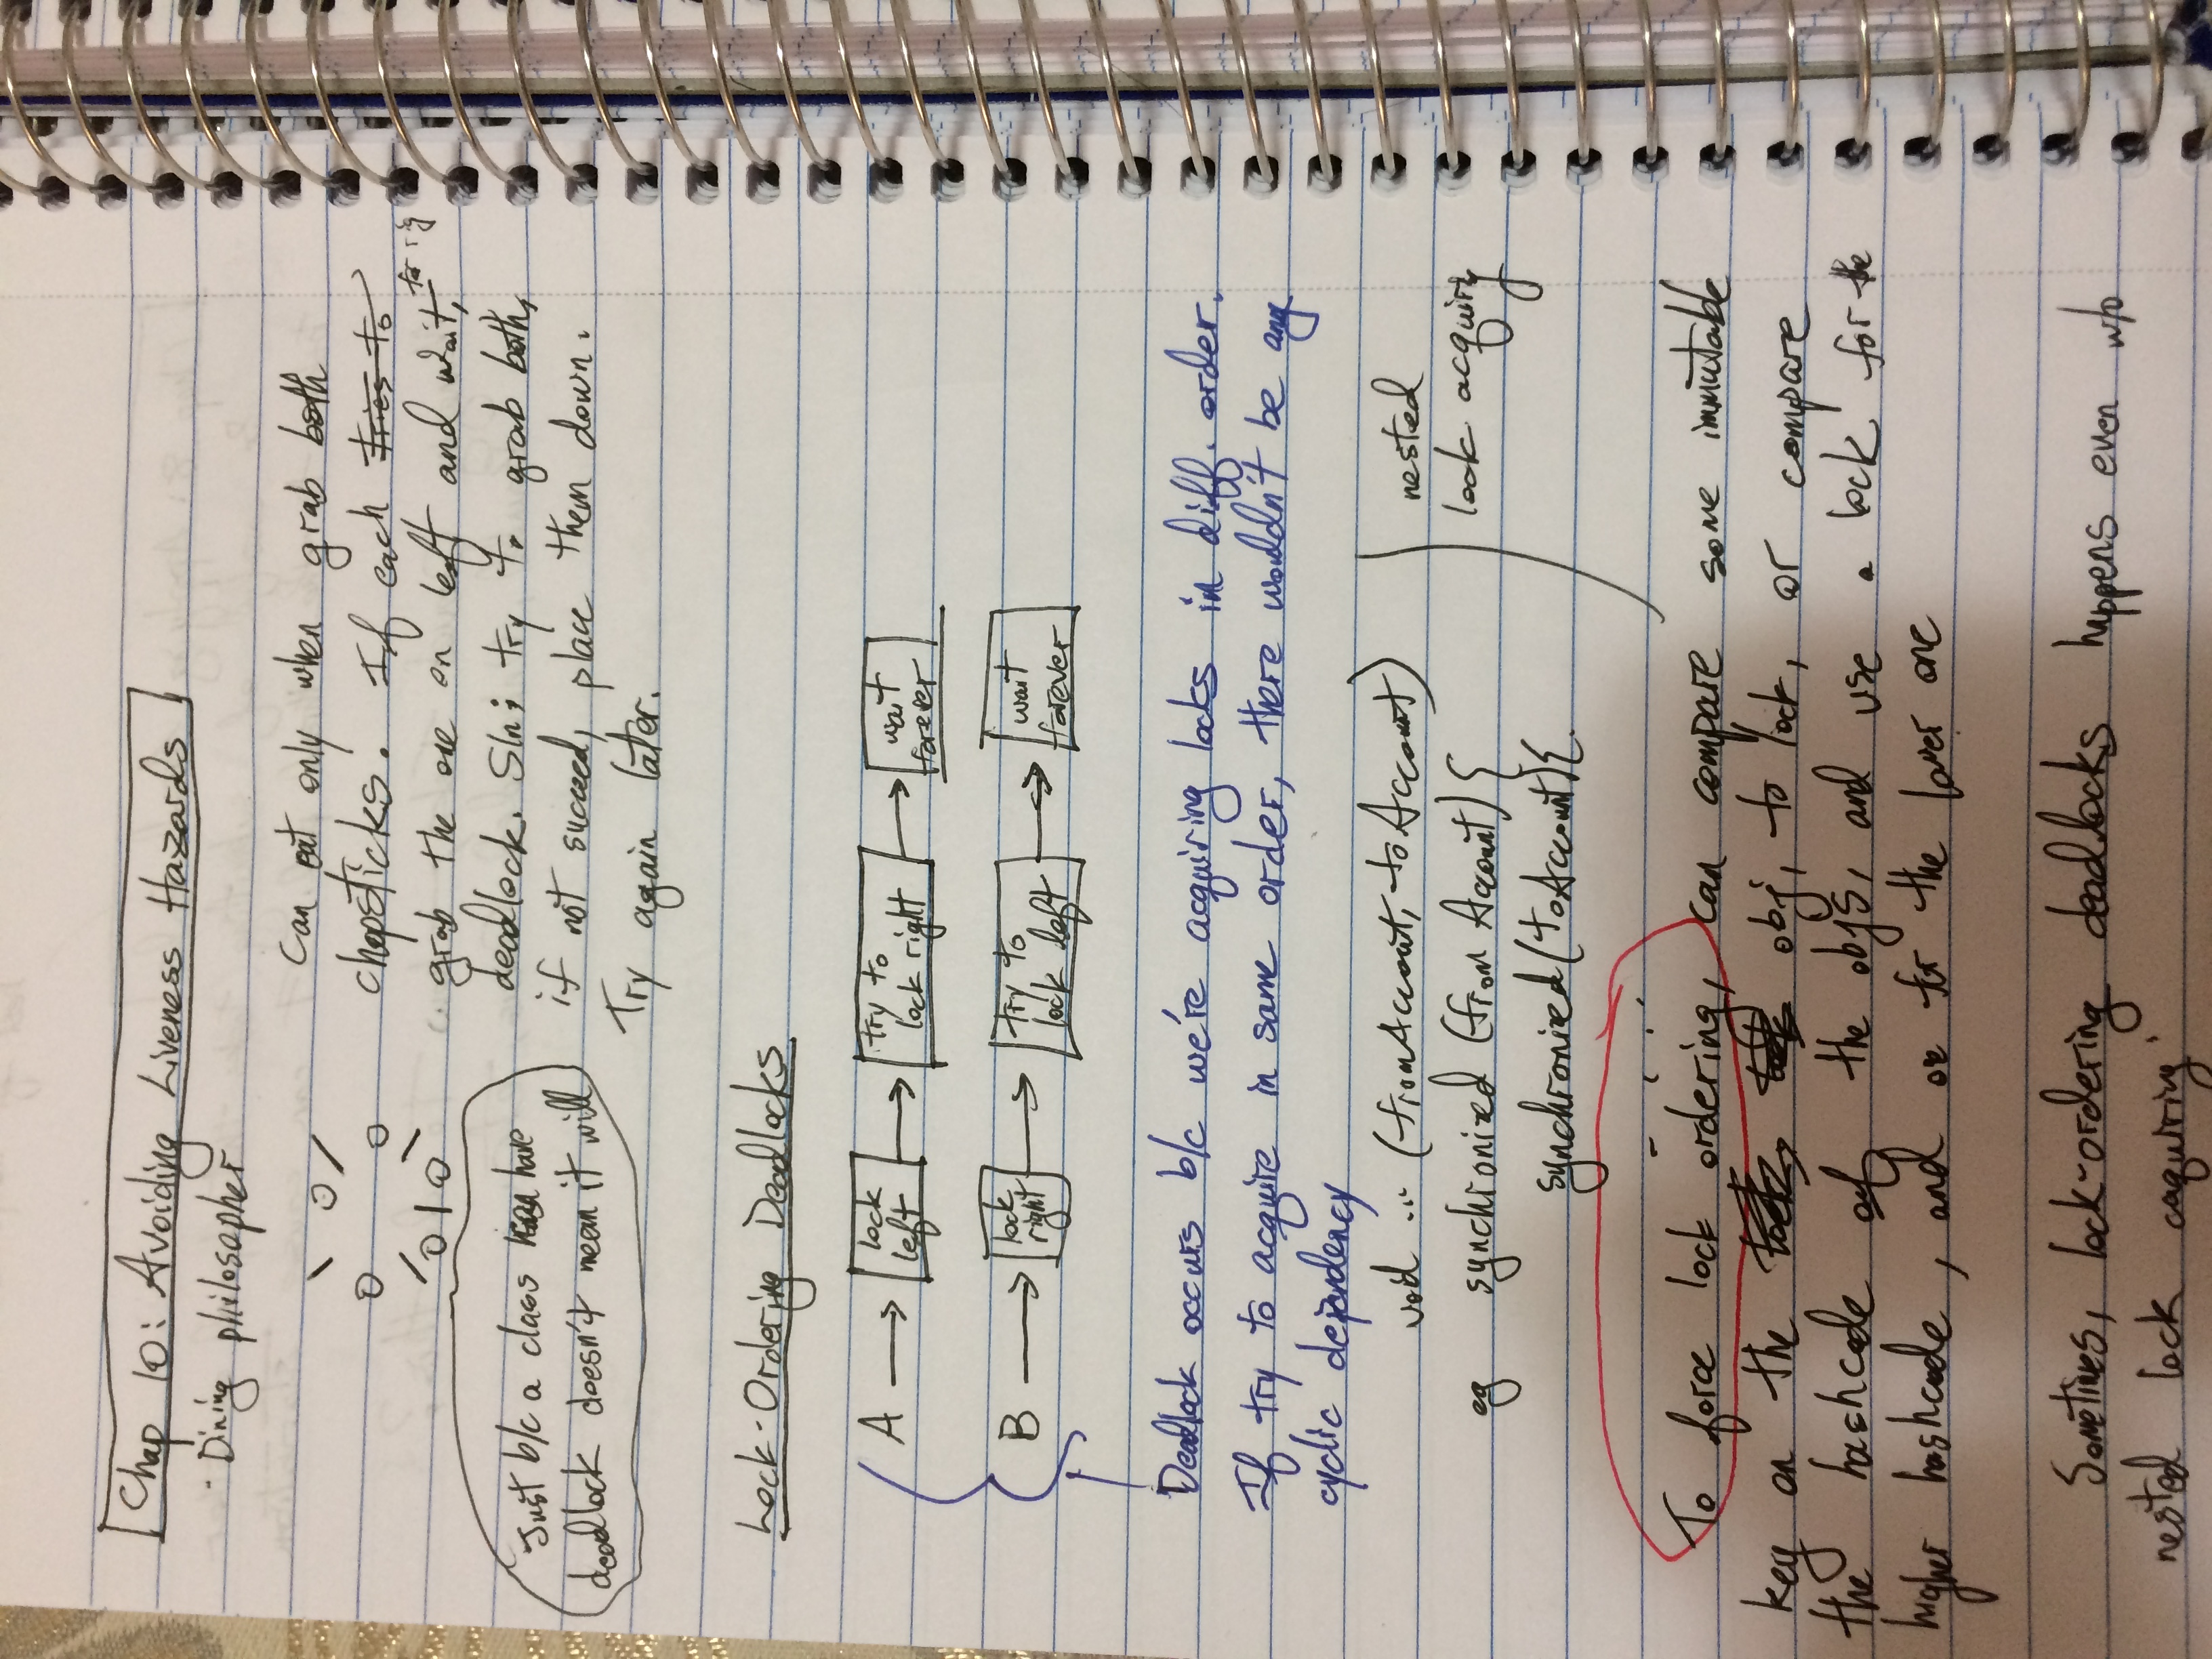 Chap 10: Avoiding Liveness Hazards
- Dining philosopher
Can eat only when grab both
chopsticks. If each tries to
grab the one on left and wait, for rig
deadlock. Sln: try to grab both,
if not succeed, place them down.
Try again later.
Just b/c a class can have
deadlock doesn't mean it will
Lock-Ordering Deadlocks
A → lock left → try to lock right → wait forever
B → lock right → try to lock left → wait forever
Deadlock occurs b/c we're acquiring locks in diff. order.
If try to acquire in same order, there wouldn't be any
cyclic dependency
void ... (fromAccount, toAccount)
eg synchronized (fromAccount) {
synchronized (toAccount) {
nested
lock acquiry
To force lock ordering, can compare some immutable
key on the obj, to lock, or compare
the hashcode of the objs, and use a lock for the
higher hashcode, and oe for the lower one
Sometimes, lock-ordering deadlocks happens even w/o
nested lock caquiring